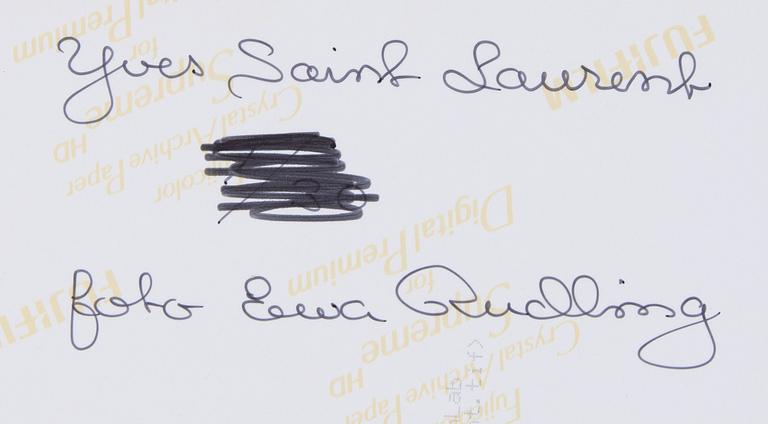 Yves Saint Laurent
30
foto Ewa Rudling
FUJIFILM
Crystal Archive Paper
Supreme HD
for
Digital Premium
FUJIFILM
Fujicolor
Crystal Archive Paper
Supreme HD
for
Digital Premium